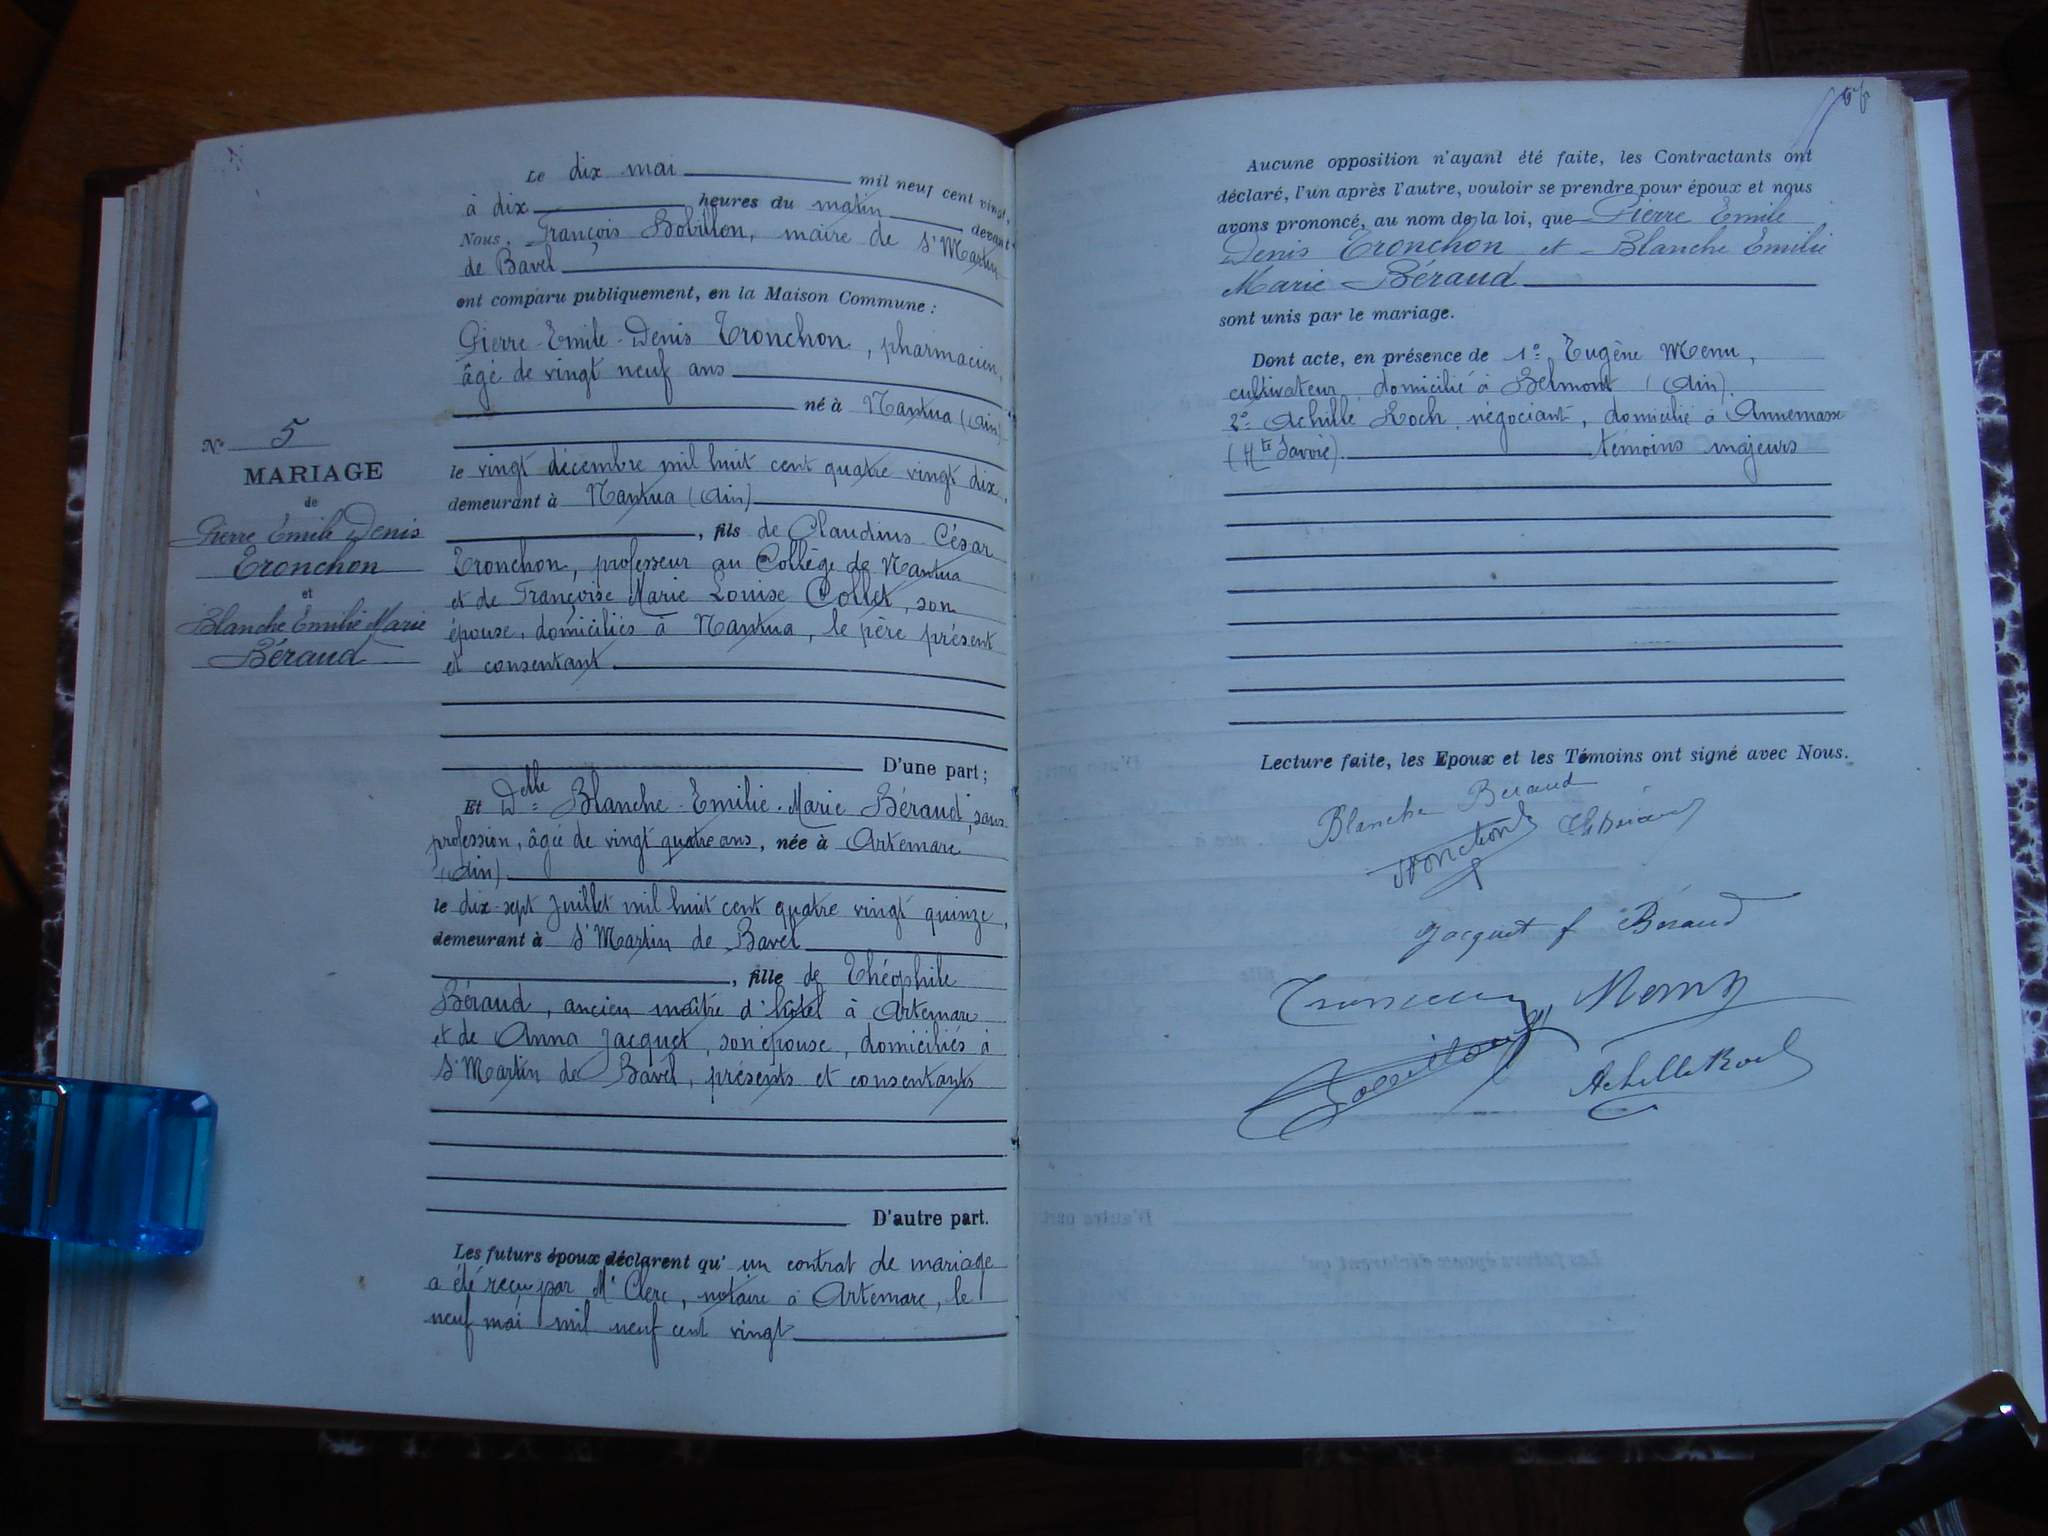 Le dix mai mil neuf cent vingt,
à dix heures du matin devant
Nous, François Bobillon, maire de St Martin
de Bavel
ont comparu publiquement, en la Maison Commune :
Pierre-Emile-Denis Tronchon, pharmacien,
âgé de vingt neuf ans
né à Nantua (Ain)
le vingt décembre mil huit cent quatre vingt dix,
demeurant à Nantua (Ain)
, fils de Claudius César
Tronchon, professeur au Collège de Nantua
et de Françoise Marie Louise Collet, son
épouse, domiciliés à Nantua, le père présent
et consentant
D'une part ;
Et Delle Blanche-Emilie-Marie Béraud, sans
profession, âgée de vingt quatre ans, née à Artemare
(Ain)
le dix-sept juillet mil huit cent quatre vingt quinze,
demeurant à St Martin de Bavel
, fille de Théophile
Béraud, ancien maître d'hôtel à Artemare
et de Anna Jacquet, son épouse, domiciliés à
St Martin de Bavel, présents et consentants
D'autre part.
Les futurs époux déclarent qu' un contrat de mariage
a été reçu par Me Clerc, notaire à Artemare, le
neuf mai mil neuf cent vingt
No 5
MARIAGE
de
Pierre Émile Denis
Tronchon
et
Blanche Emilie Marie
Béraud
Aucune opposition n'ayant été faite, les Contractants ont
déclaré, l'un après l'autre, vouloir se prendre pour époux et nous
avons prononcé, au nom de la loi, que Pierre Emile
Denis Tronchon et Blanche Emilie
Marie Béraud
sont unis par le mariage.
Dont acte, en présence de 1º Eugène Menu,
cultivateur, domicilié à Belmont (Ain)
2º Achille Roch, négociant, domicilié à Annemasse
(Hte Savoie). témoins majeurs
Lecture faite, les Epoux et les Témoins ont signé avec Nous.
Blanche Beraud
Tronchon
Jacquet f Béraud
Menu
Bobillon
Achille Roch